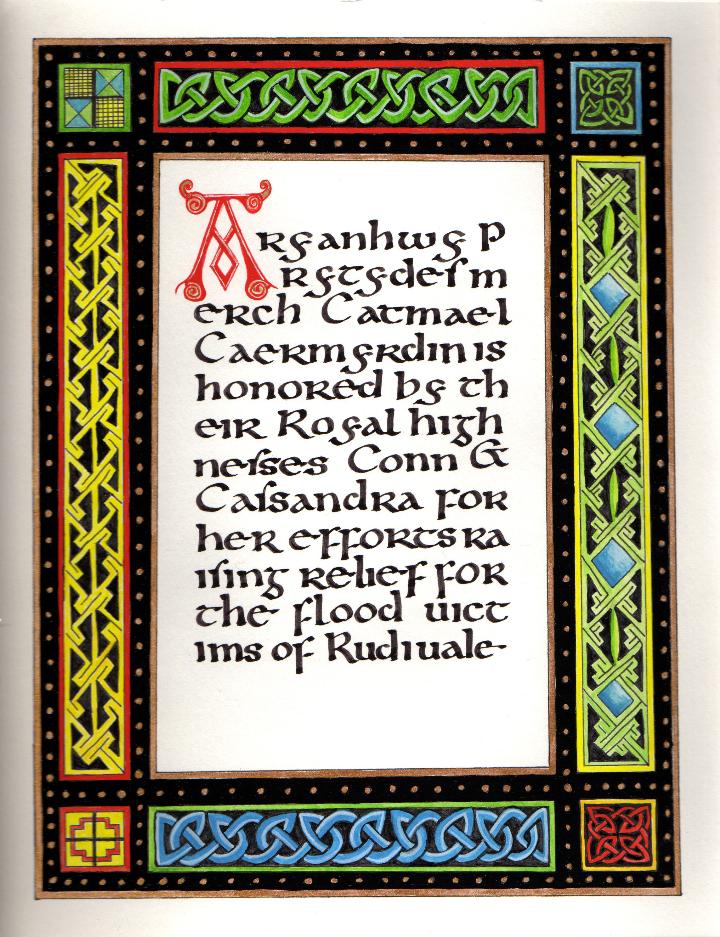 Aryanhwy P
rytydeſ m
erch Catmael
Caermyrdin is
honored by th
eir Royal high
neſses Conn &
Caſsandra for
her efforts ra
iſing relief for
the flood uict
ims of Rudiuale